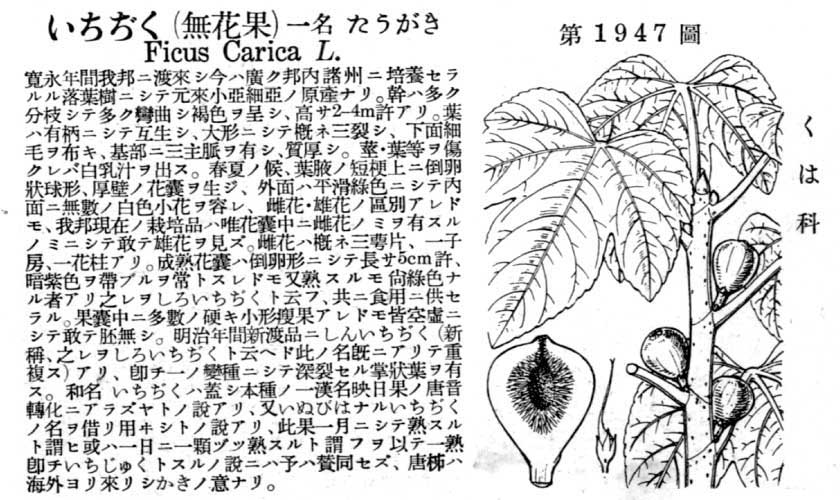 いちぢく (無花果) 一名 たうがき
Ficus Carica L.
寛永年間我邦ニ渡來シ今ハ廣ク邦内諸州ニ培養セラ
ルル落葉樹ニシテ元來小亞細亞ノ原產ナリ。幹ハ多ク
分枝シテ多ク彎曲シ褐色ヲ呈シ、高サ2-4m許アリ。葉
ハ有柄ニシテ互生シ、大形ニシテ概ネ三裂シ、下面細
毛ヲ布キ、基部ニ三主脈ヲ有シ、質厚シ。莖・葉等ヲ傷
クレバ白乳汁ヲ出ス。春夏ノ候、葉腋ノ短梗上ニ倒卵
狀球形、厚壁ノ花囊ヲ生ジ、外面ハ平滑綠色ニシテ内
面ニ無數ノ白色小花ヲ容レ、雌花・雄花ノ區別アレド
モ、我邦現在ノ栽培品ハ唯花囊中ニ雌花ノミヲ有スル
ノミニシテ敢テ雄花ヲ見ズ。雌花ハ概ネ三萼片、一子
房、一花柱アリ。成熟花囊ハ倒卵形ニシテ長サ5cm許、
暗紫色ヲ帶ブルヲ常トスレドモ又熟スルモ尙綠色ナ
ル者アリ之レヲしろいちぢくト云フ、共ニ食用ニ供セ
ラル。果囊中ニ多數ノ硬キ小形瘦果アレドモ皆空虛ニ
シテ敢テ胚無シ。明治年間新渡品ニしんいちぢく(新
稱、之レヲしろいちぢくト云ヘド此ノ名旣ニアリテ重
複ス)アリ、卽チ一ノ變種ニシテ深裂セル掌狀葉ヲ有
ス。和名 いちぢくハ蓋シ本種ノ一漢名映日果ノ唐音
轉化ニアラズヤトノ說アリ、又いぬびはナルいちぢく
ノ名ヲ借リ用ヰシトノ說アリ、此果一月ニシテ熟スル
ト謂ヒ或ハ一日ニ一顆ヅツ熟スルト謂フヲ以テ一熟
卽チいちじゅくトスルノ說ニハ予ハ贊同セズ、唐柹ハ
海外ヨリ來リシかきノ意ナリ。
第1947圖
くは科